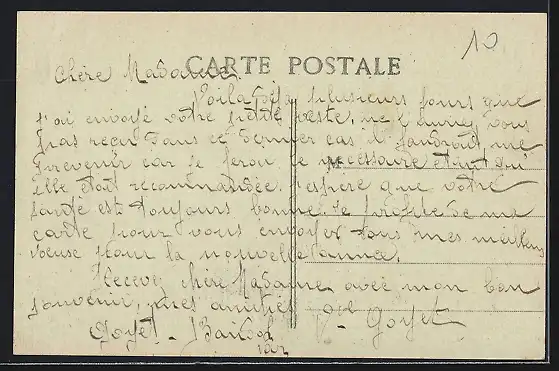 10
CARTE POSTALE
Chère Madame.
Voila déja plusieurs jours que
j'ai envoyé votre petite veste, ne l'auriez vous
pas reçu dans ce dernier cas il faudrait me
prevenir car je ferai le necessaire étant qu'
elle était recommandée. J'espère que votre
santé est toujours bonne. Je profite de ma
carte pour vous envoyer tous mes meilleurs
voeux pour la nouvelle année.
Recevez chère Madame avec mon bon
souvenir, mes amitiés
Goyet
Goyet - Bandol
Var